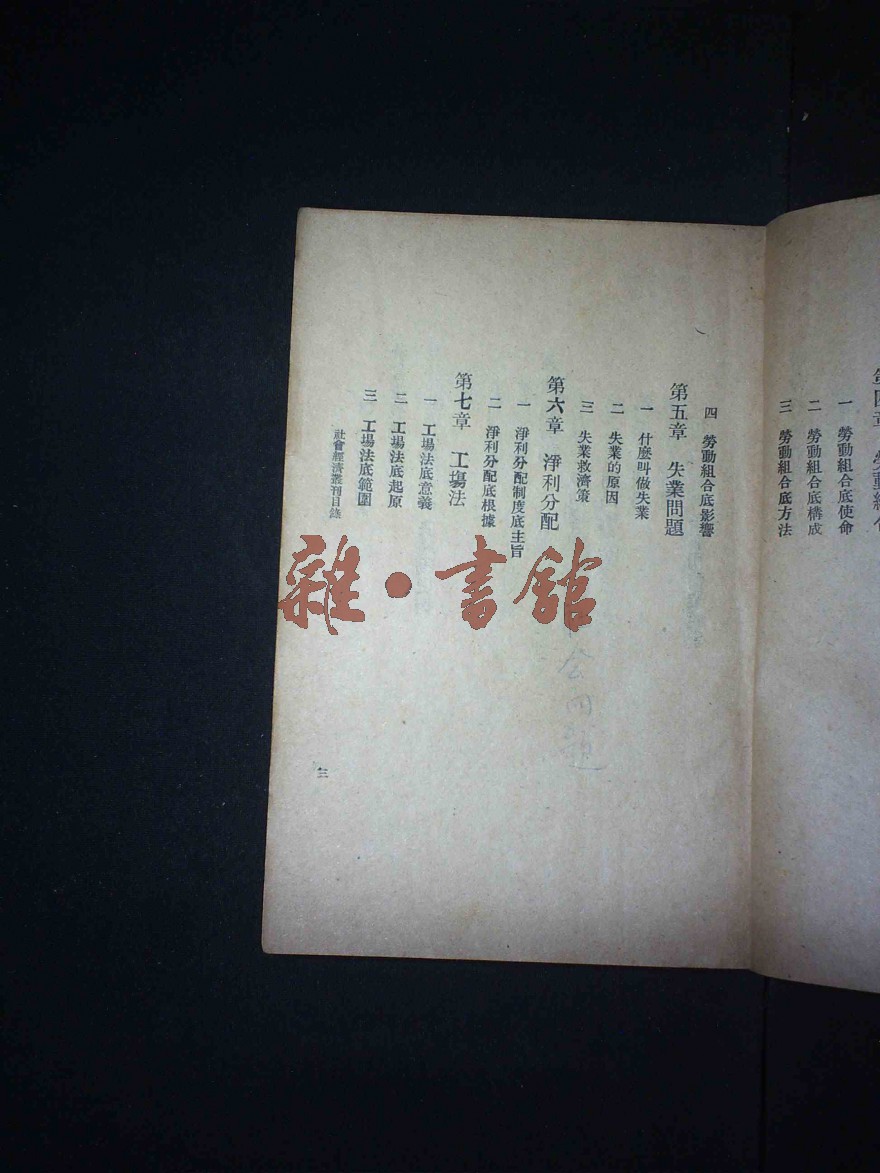 一 勞動組合底使命
二 勞動組合底構成
三 勞動組合底方法
四 勞動組合底影響
第五章 失業問題
一 什麼叫做失業
二 失業的原因
三 失業救濟策
第六章 淨利分配
一 淨利分配制度底主旨
二 淨利分配底根據
第七章 工場法
一 工場法底意義
二 工場法底起原
三 工場法底範圍
社會經濟叢刊目錄
三
雜·書館